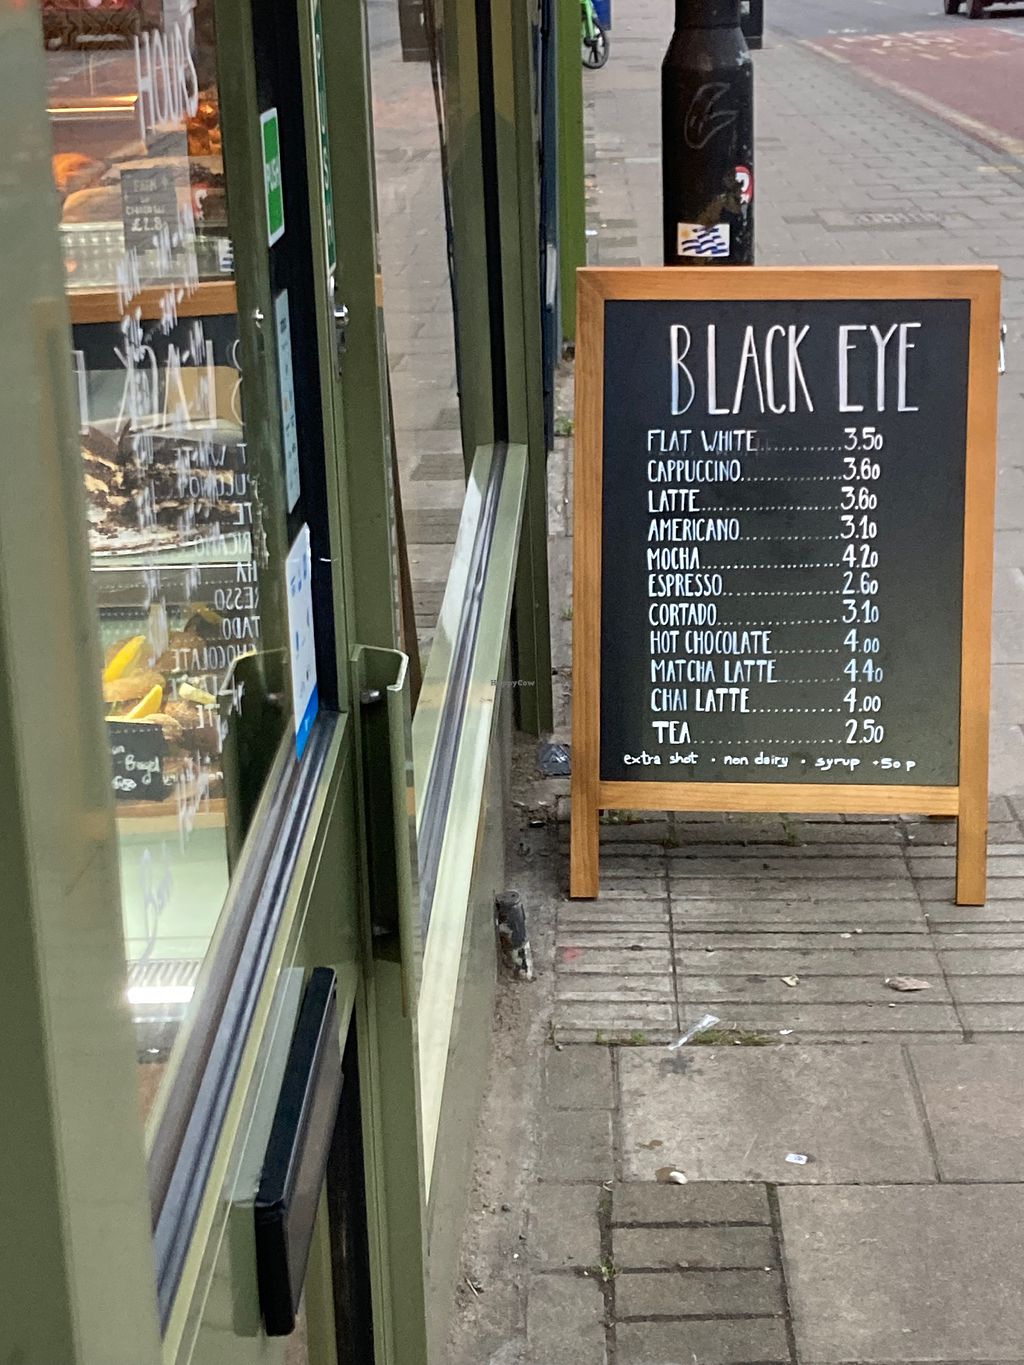 HOURS
PUSH
BLACK EYE
FLAT WHITE............3.50
CAPPUCCINO..............3.60
LATTE...................3.60
AMERICANO..............3.10
MOCHA...................4.20
ESPRESSO................2.60
CORTADO.................3.10
HOT CHOCOLATE..........4.00
MATCHA LATTE.........4.40
CHAI LATTE.............4.00
TEA.....................2.50
extra shot · non dairy · syrup +50 p
HappyCow